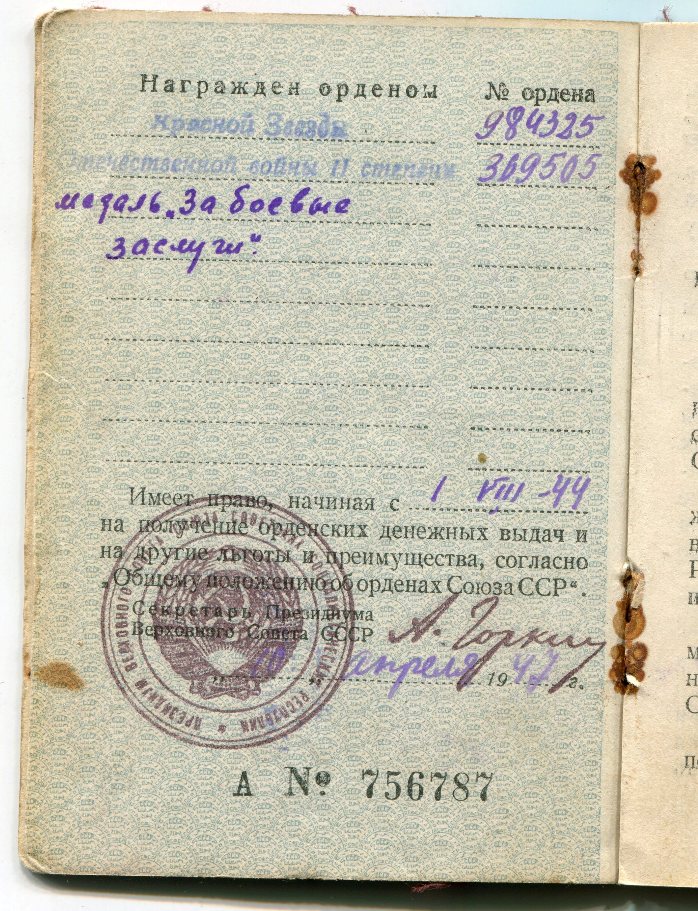 Награжден орденом № ордена
Красной Звезды 984325
Отечественной войны II степени 369505
медаль „За боевые
заслуги".
Имеет право, начиная с 1 VIII -44
на получение орденских денежных выдач и
на другие льготы и преимущества, согласно
„Общему положению об орденах Союза ССР“.
Секретарь Президиума
Верховного Совета СССР А. Горкин
10 апреля 1947 г.
А № 756787